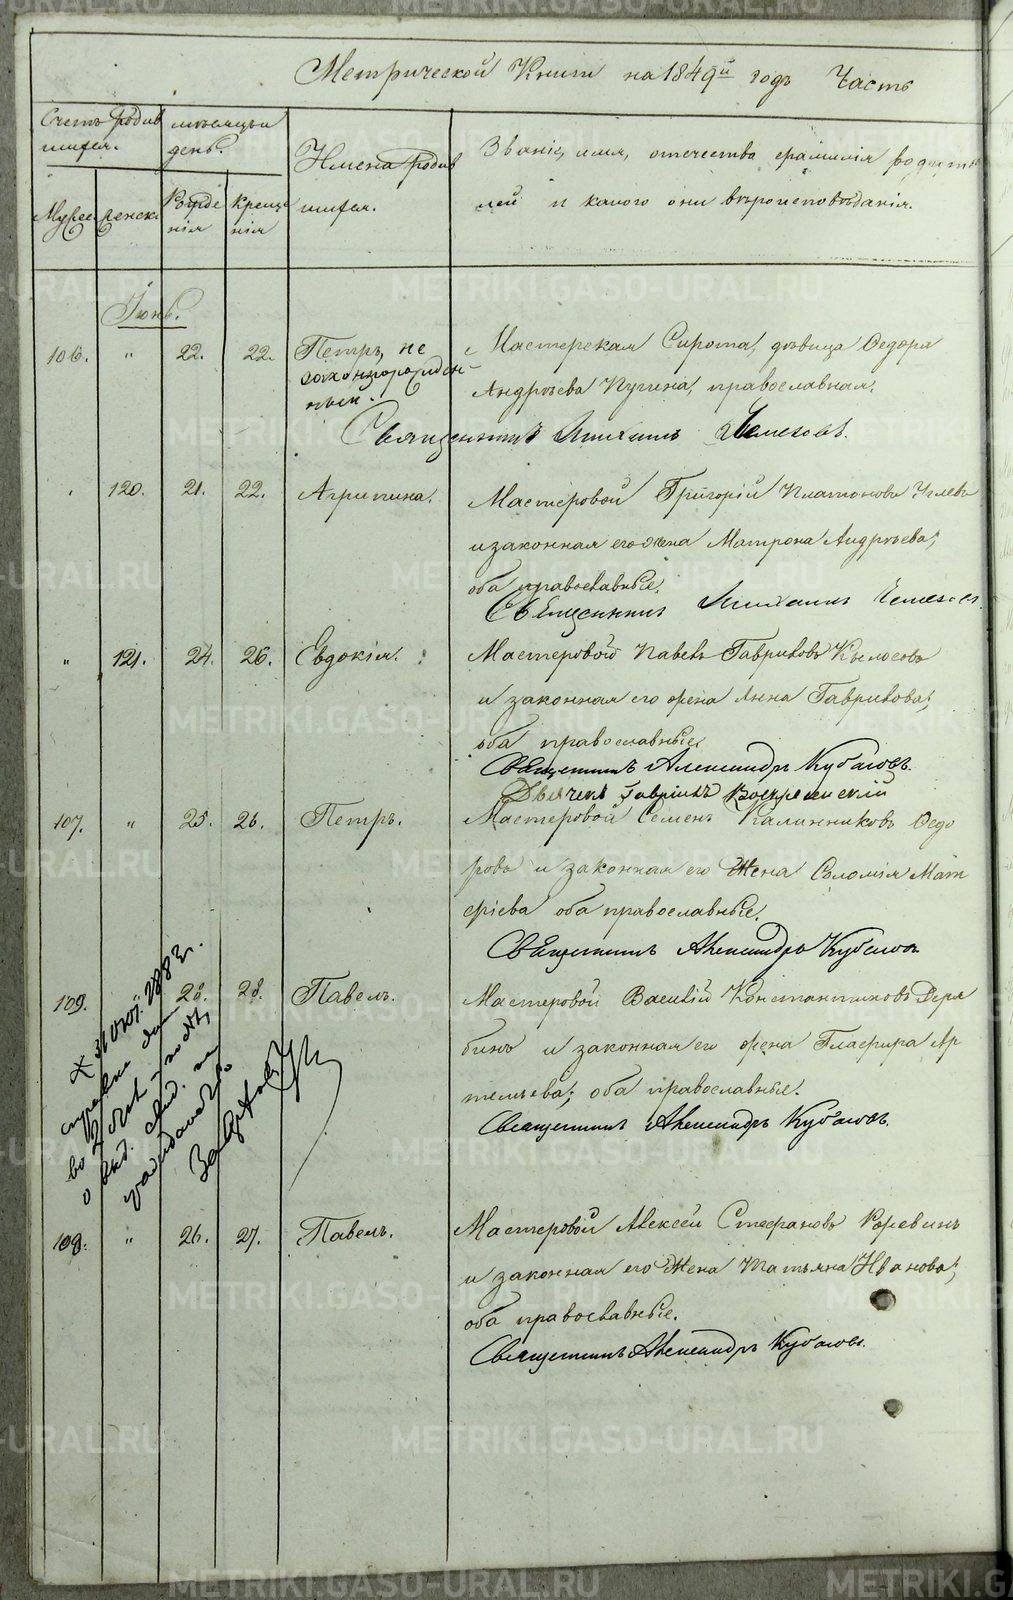 Метрической Книги на 1849й годъ Часть
Счетъ родив
шихся.
мѣсяцъ и
день.
Имена родив
шихся.
Званіе, имя, отчество фамилія родите
лей и какого они вѣроисповѣданія.
Рожде
нія
Креще
нія
Іюнь.
106. " 22. 22. Петръ, не
законнорожден-
ный.
Мастерская Сирота, дѣвица Ѳедора
Андрѣева Пугина, православная.
Священникъ Михаилъ
120. 21. 22. Агрипина.
Мастеровой Григорій Платоновъ
и законная его жена Матрона Андрѣева,
оба православные.
Священникъ Михаилъ
" 121. 24. 26. Евдокія.
Мастеровой Павелъ Гавриловъ
и законная его жена Анна Гаврилова,
оба православные.
Священникъ Александръ Кубасовъ.
Дьячекъ Гавріилъ Воскресенскій
107. " 25. 26. Петръ.
Мастеровой Семенъ Калинниковъ Ѳедо
ровъ и законная его жена Соломія Мат
фіева оба православные.
Священникъ Александръ Кубасовъ
109. " 28. 28. Павелъ.
Мастеровой Василій Константиновъ Деря
бинъ и законная его жена Глафира Ар
темьева, оба православные.
Священникъ Александръ Кубасовъ.
108. " 26. 27. Павелъ.
Мастеровой Алексѣй Стефановъ
и законная его жена Татьяна Иванова,
оба православные.
Священникъ Александръ Кубасовъ.
METRIKI.GASO-URAL.RU